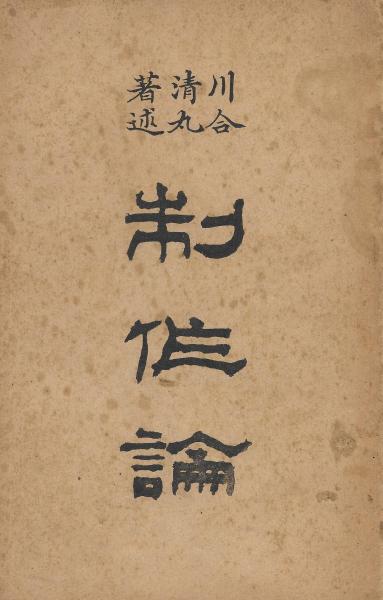 川合
清丸
著述
制作論